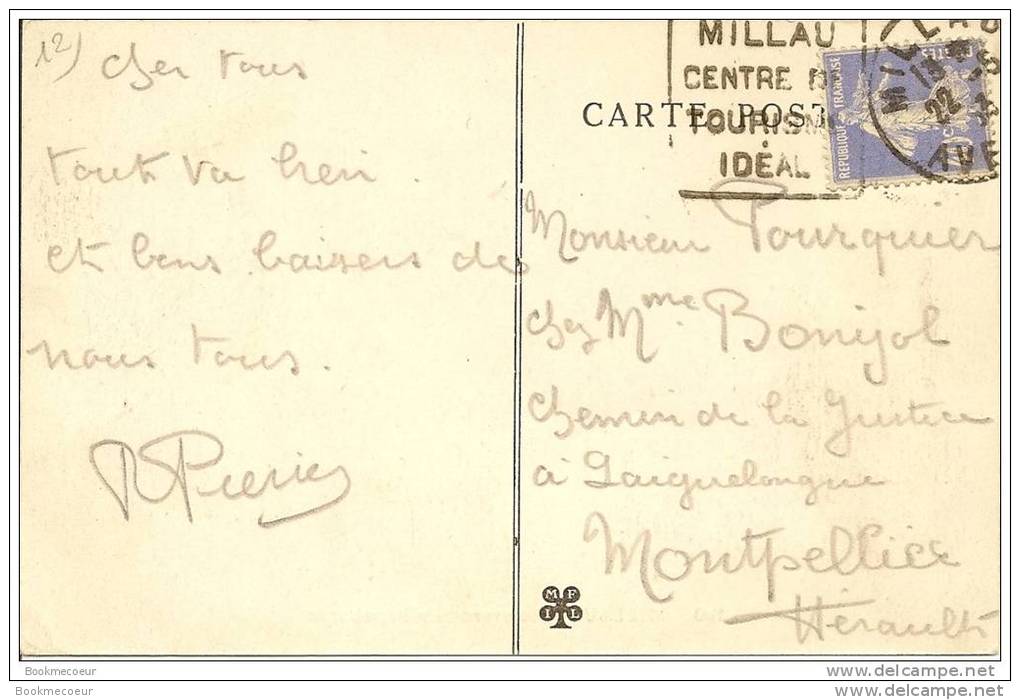 12)
cher tous
tout va bien.
et bons baisers de
nous tous.
MILLAU
CENTRE
TOURISM
IDÉAL
CARTE POST
REPUBLIQUE FRANÇAISE
POSTES
MILL
22
AVE
Monsieur Pourquier
chez Mme Bonijol
chemin de la Justice
à Laiguelongue
Montpellier
Hérault
M F
I L
Bookmecoeur
Bookmecoeur
www.delcampe.net
www.delcampe.net